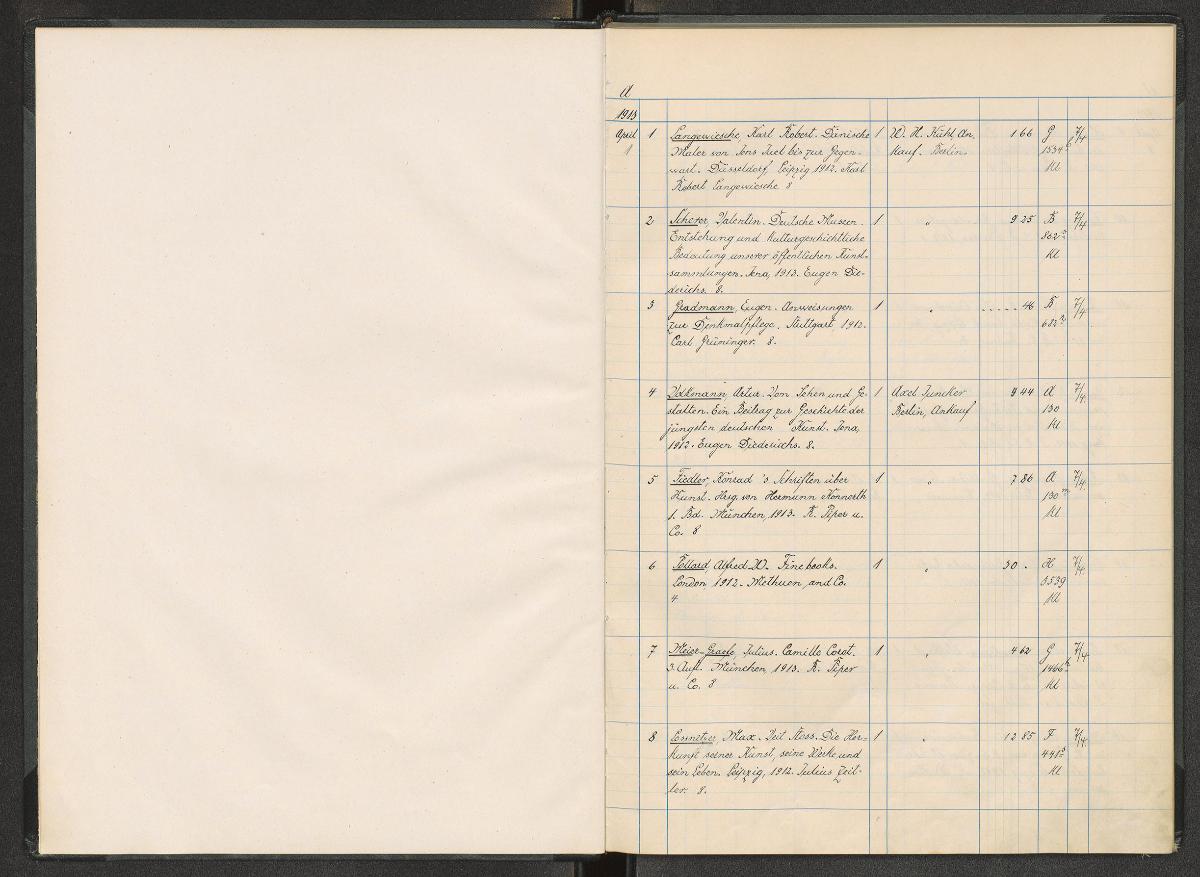 A
1913
April 1 Langewiesche, Karl Robert. Dänische 1 W. H. Kühl An- 1 66 G 7/4
1 Maler von Jens Juel bis zur Gegen- kauf. Berlin. 1534
wart. Düsseldorf, Leipzig 1912. Karl Kl
Robert Langewiesche 8
2 Scherer, Valentin. Deutsche Museen. 1 " 9 25 B 7/4
Entstehung und Kulturgeschichtliche 802
Bedeutung unserer öffentlichen Kunst- Kl
sammlungen. Jena, 1913. Eugen Die-
derichs. 8.
3 Gradmann, Eugen. Anweisungen 1 " 46 B 7/4
zur Denkmalpflege. Stuttgart 1912. 682
Carl Grüninger. 8.
4 Volkmann, Artur. Vom Sehen und Ge- 1 Axel Juncker 9 44 A 7/4
stalten. Ein Beitrag zur Geschichte der Berlin, Ankauf 130
jüngsten deutschen Kunst. Jena, Kl
1912. Eugen Diederichs. 8.
5 Fiedler, Konrad's Schriften über 1 " 7 86 A 7/4
Kunst. Hrsg. von Hermann Konnerth 130 m
1. Bd. München, 1913. R. Piper u. Kl
Co. 8
6 Pollard, Alfred W. Fine books. 1 " 30 . H 7/4
London, 1912. Methuen, and Co. 3539
4. Kl
7 Meier-Graefe, Julius. Camille Corot. 1 " 4 62 G 7/4
3. Aufl. München, 1913. R. Piper 1466
u. Co. 8 Kl
8 Lossnitzer, Max. Veit Stoss. Die Her- 1 " 12 85 F 7/4
kunft seiner Kunst, seine Werke und 441
sein Leben. Leipzig, 1912. Julius Zeit- Kl
ler. 8.